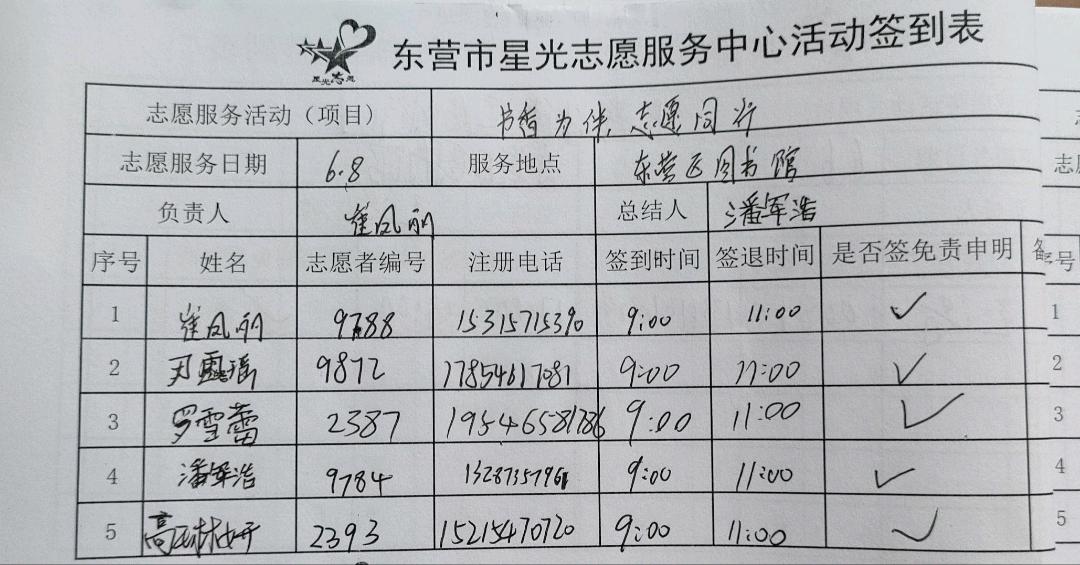 星光志愿
东营市星光志愿服务中心活动签到表
志愿服务活动（项目） 书香为伴,志愿同行
志愿服务日期 6.8 服务地点 东营区图书馆
负责人 崔凤丽 总结人 潘军浩
序号 姓名 志愿者编号 注册电话 签到时间 签退时间 是否签免责申明
1 崔凤丽 9788 15315715390 9:00 11:00 ✓
2 9872 17854617081 9:00 11:00 ✓
3 罗雪蕾 2387 19546581786 9:00 11:00 ✓
4 潘军浩 9784 9:00 11:00 ✓
5 2393 15215470720 9:00 11:00 ✓
序号
1
2
3
4
5